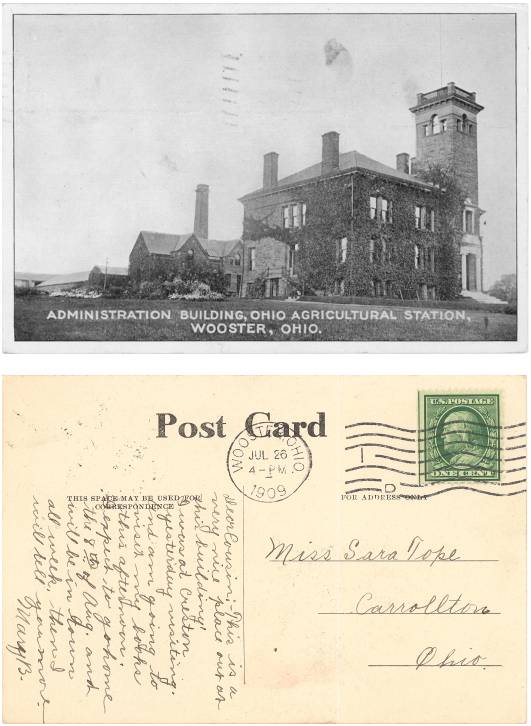 ADMINISTRATION BUILDING, OHIO AGRICULTURAL STATION,
WOOSTER, OHIO.
Post Card
WOOSTER, OHIO
JUL 26
4-PM
1909
1
D
U.S. POSTAGE
ONE CENT
THIS SPACE MAY BE USED FOR
CORRESPONDENCE
FOR ADDRESS ONLY
Dear Cousin;- This is a
very nice place out at
this building.
I was at Creston
yesterday visiting.
and am going to
visit my books
this afternoon.
I expect to go home
the 8th of Aug. and
will be in town
all week, then I
will tell you more.
Mary B.
Miss Sara Tope
Carrollton
Ohio.